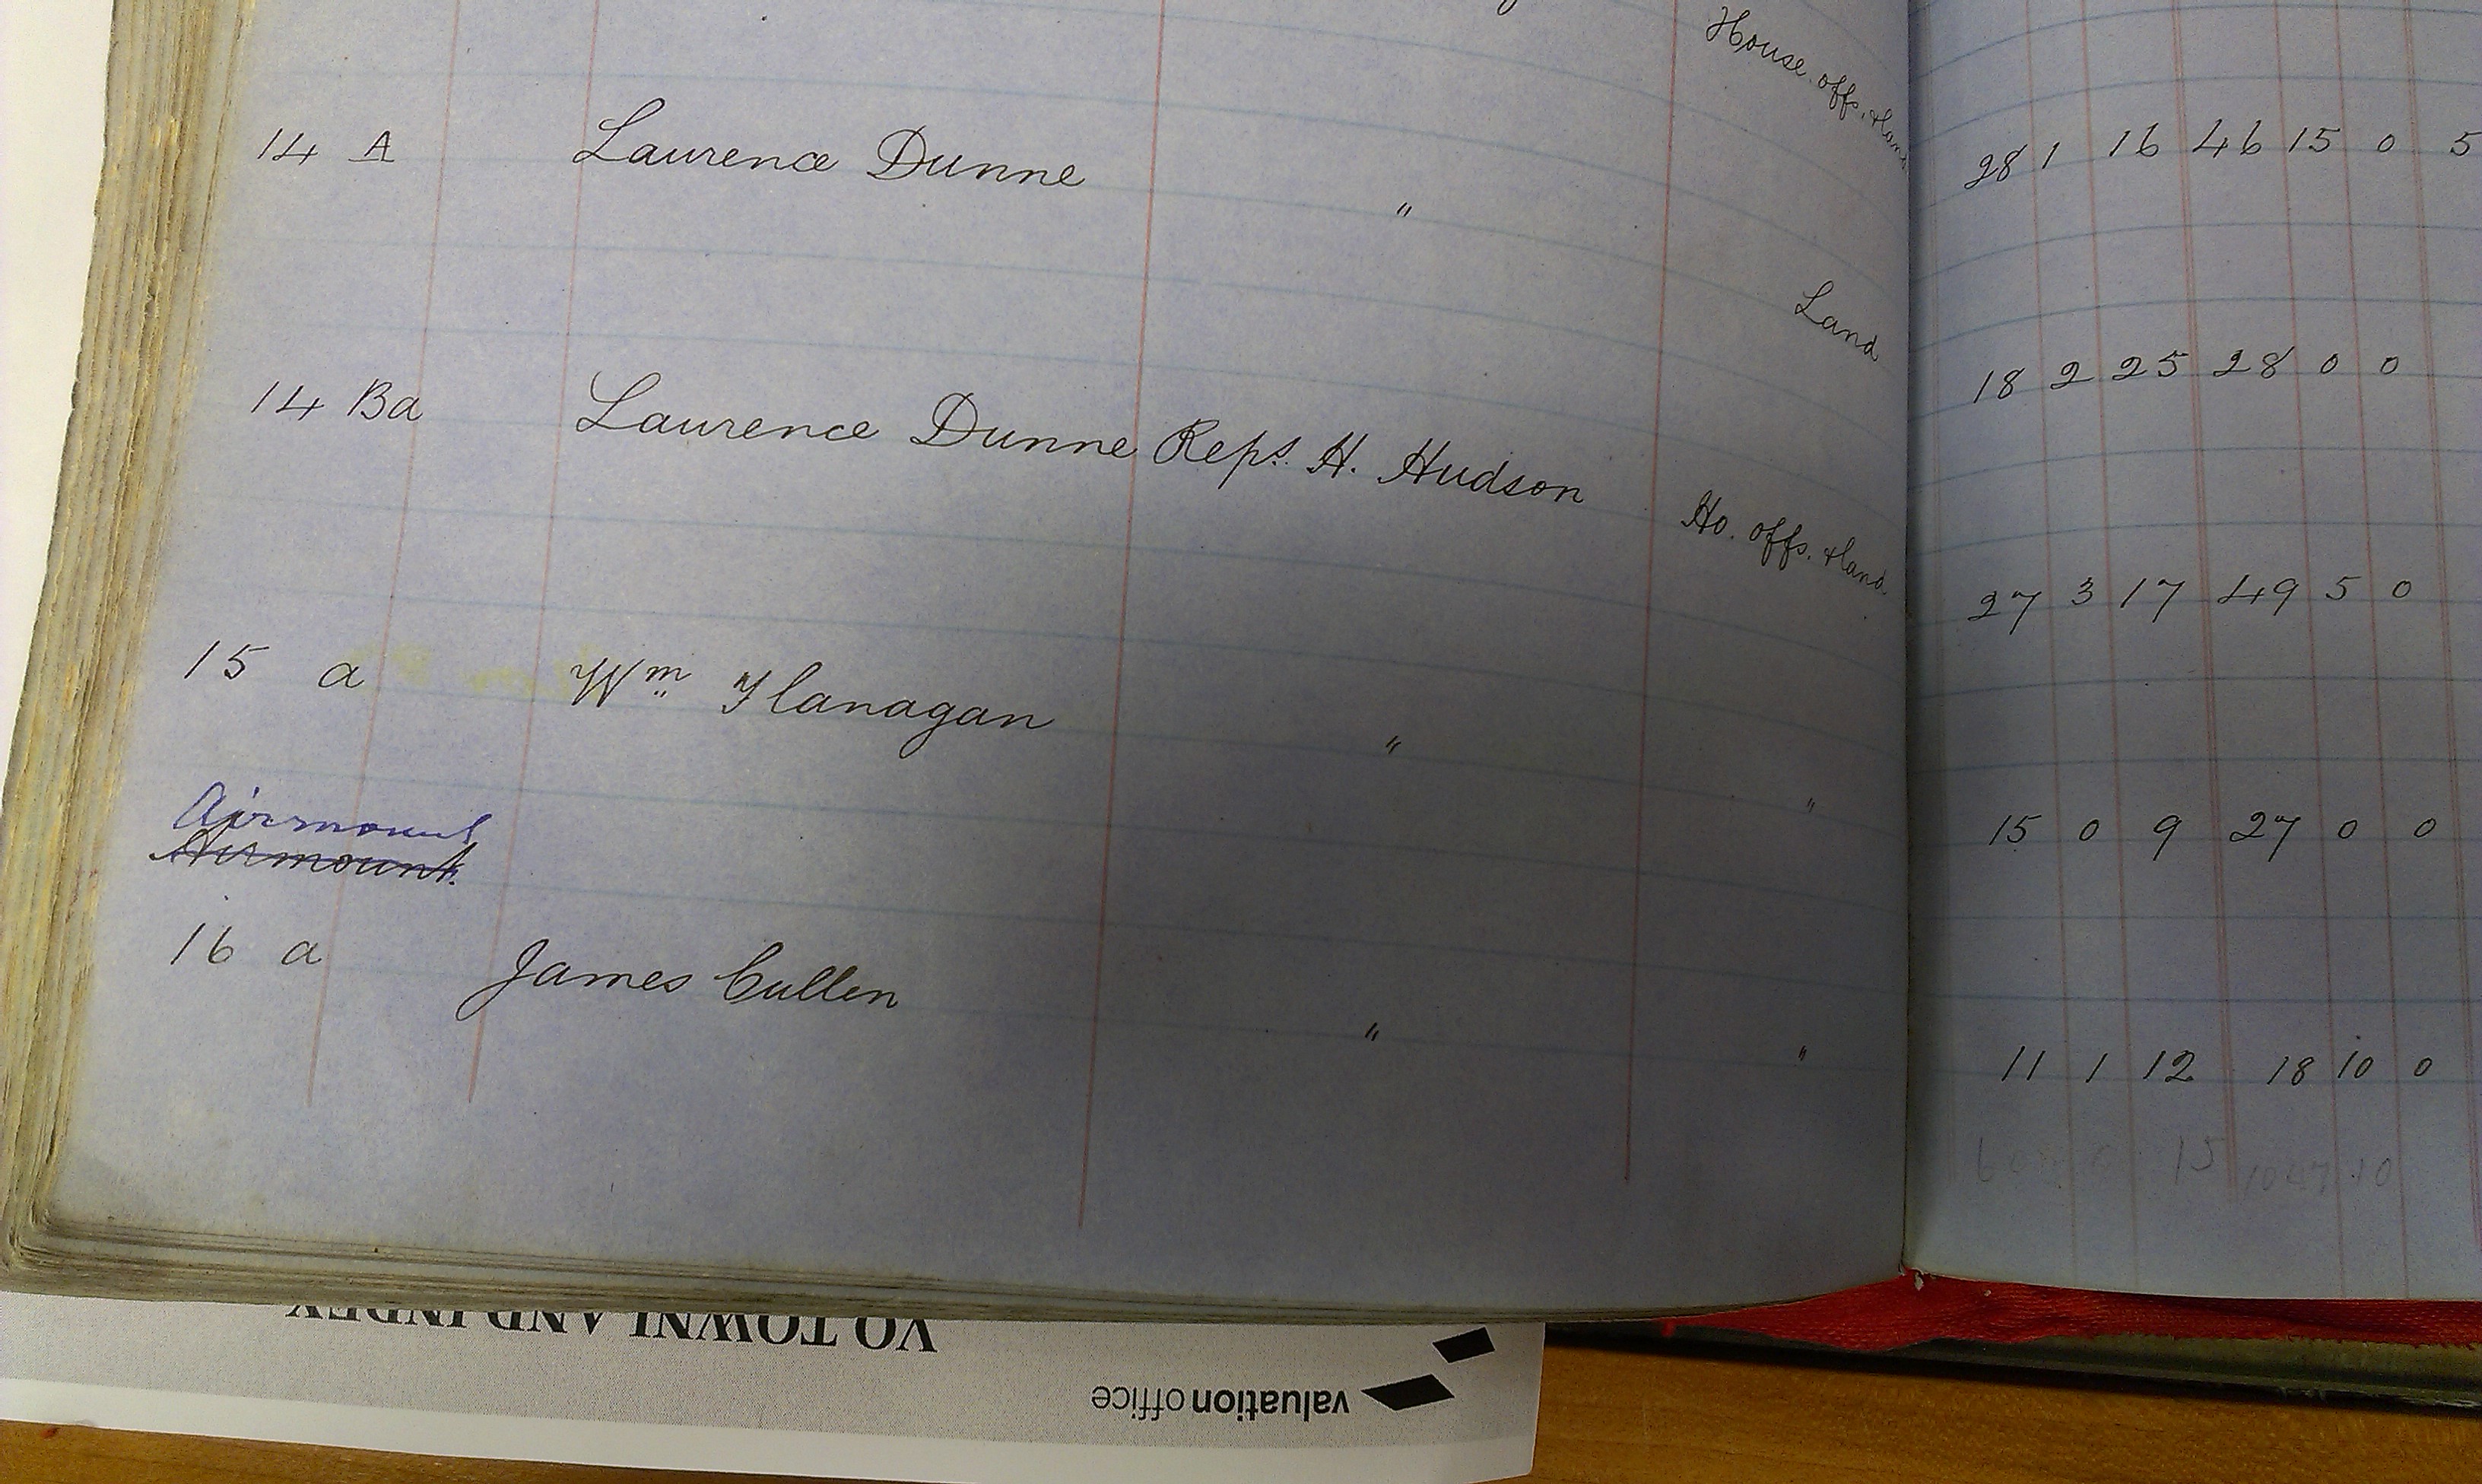 House. offs. & land
14 A Laurence Dunne "
28 1 16 46 15 0 5
Land
14 Ba Laurence Dunne Reps. H. Hudson
18 2 25 28 0 0
Ho. offs. & land.
15 a Wm Flanagan " "
27 3 17 49 5 0
Airmount
Airmount.
15 0 9 27 0 0
16 a James Cullen " "
11 1 12 18 10 0
15
VO TOWNLAND INDEX
valuation office